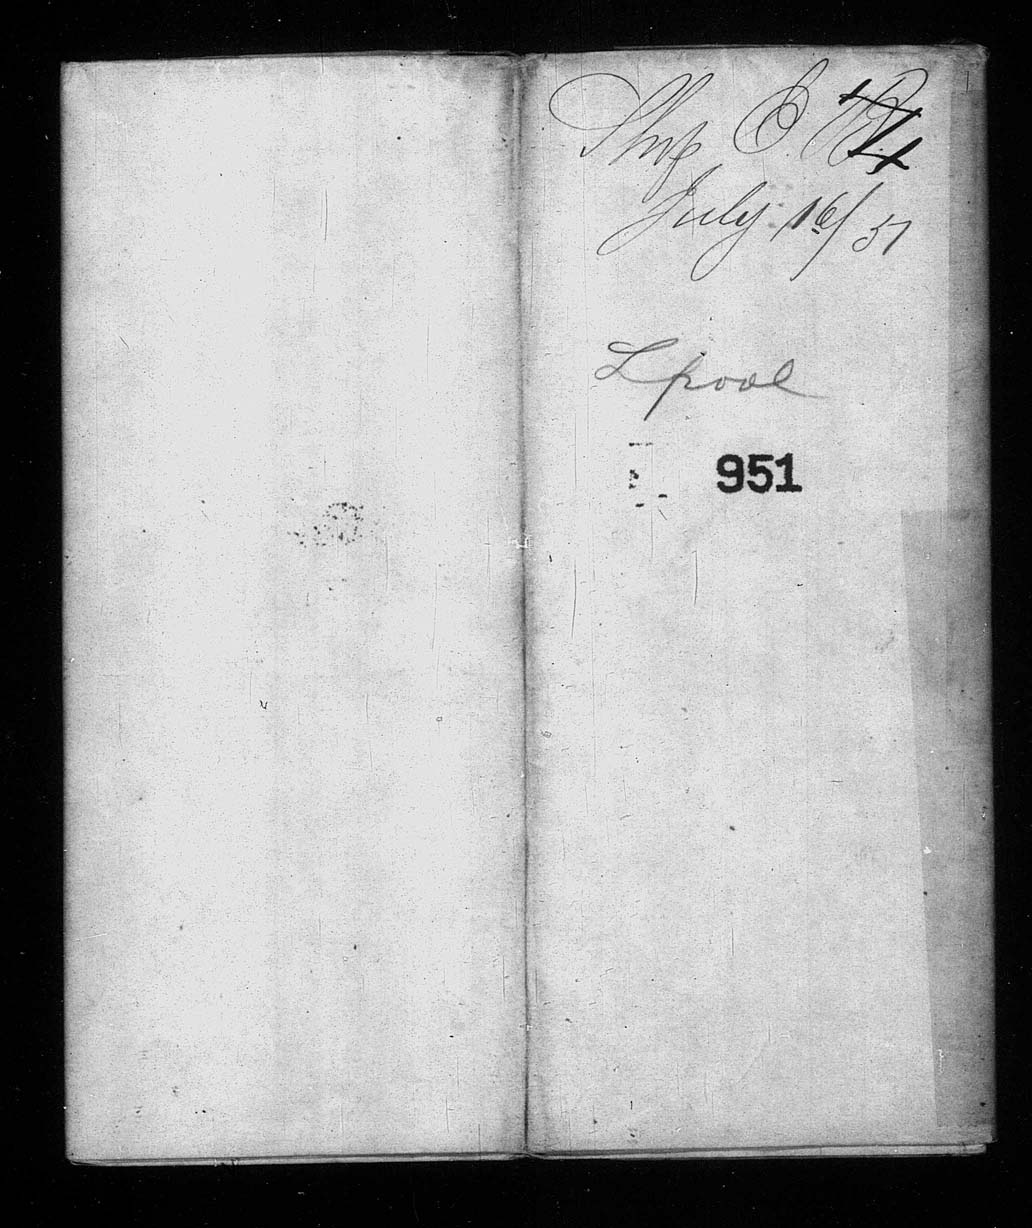 Ship C. Z.
July 16/51
Lpool
951